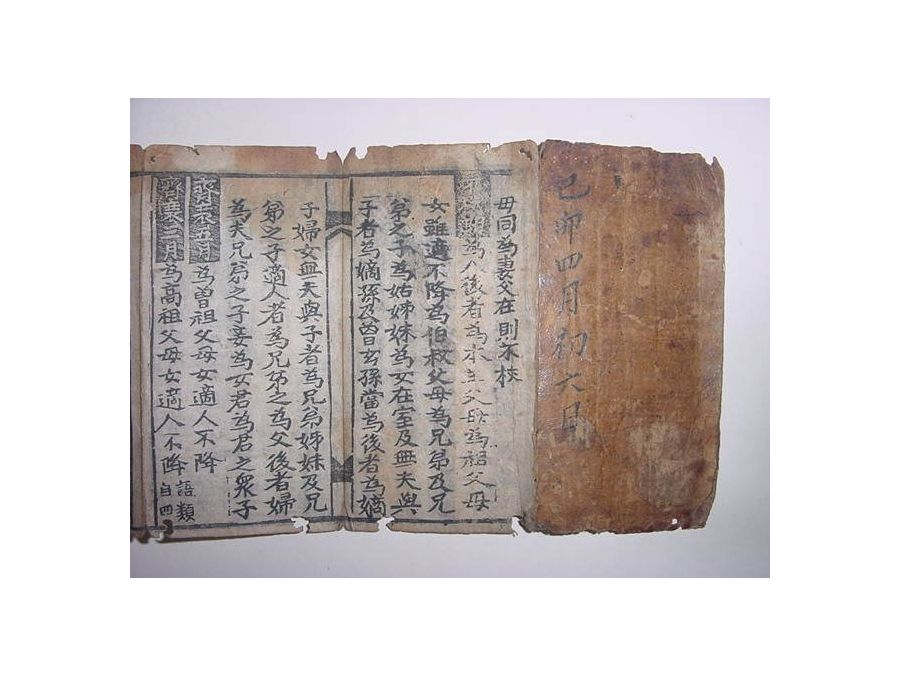 己卯四月初六日
母同為妻父在則不杖
為人後者為本生父母為祖父母
女雖適不降為伯叔父母為兄弟及兄
弟之子為姑姊妹為女在室及無夫與
子者為嫡孫及曾玄孫當為後者為嫡
子婦女無夫與子者為兄弟姊妹及兄
弟之子適人者為兄弟之為父後者婦
為夫兄弟之子妾為女君為君之衆子
齊衰五月為曾祖父母女適人不降
齊衰三月為高祖父母女適人不降語類自四